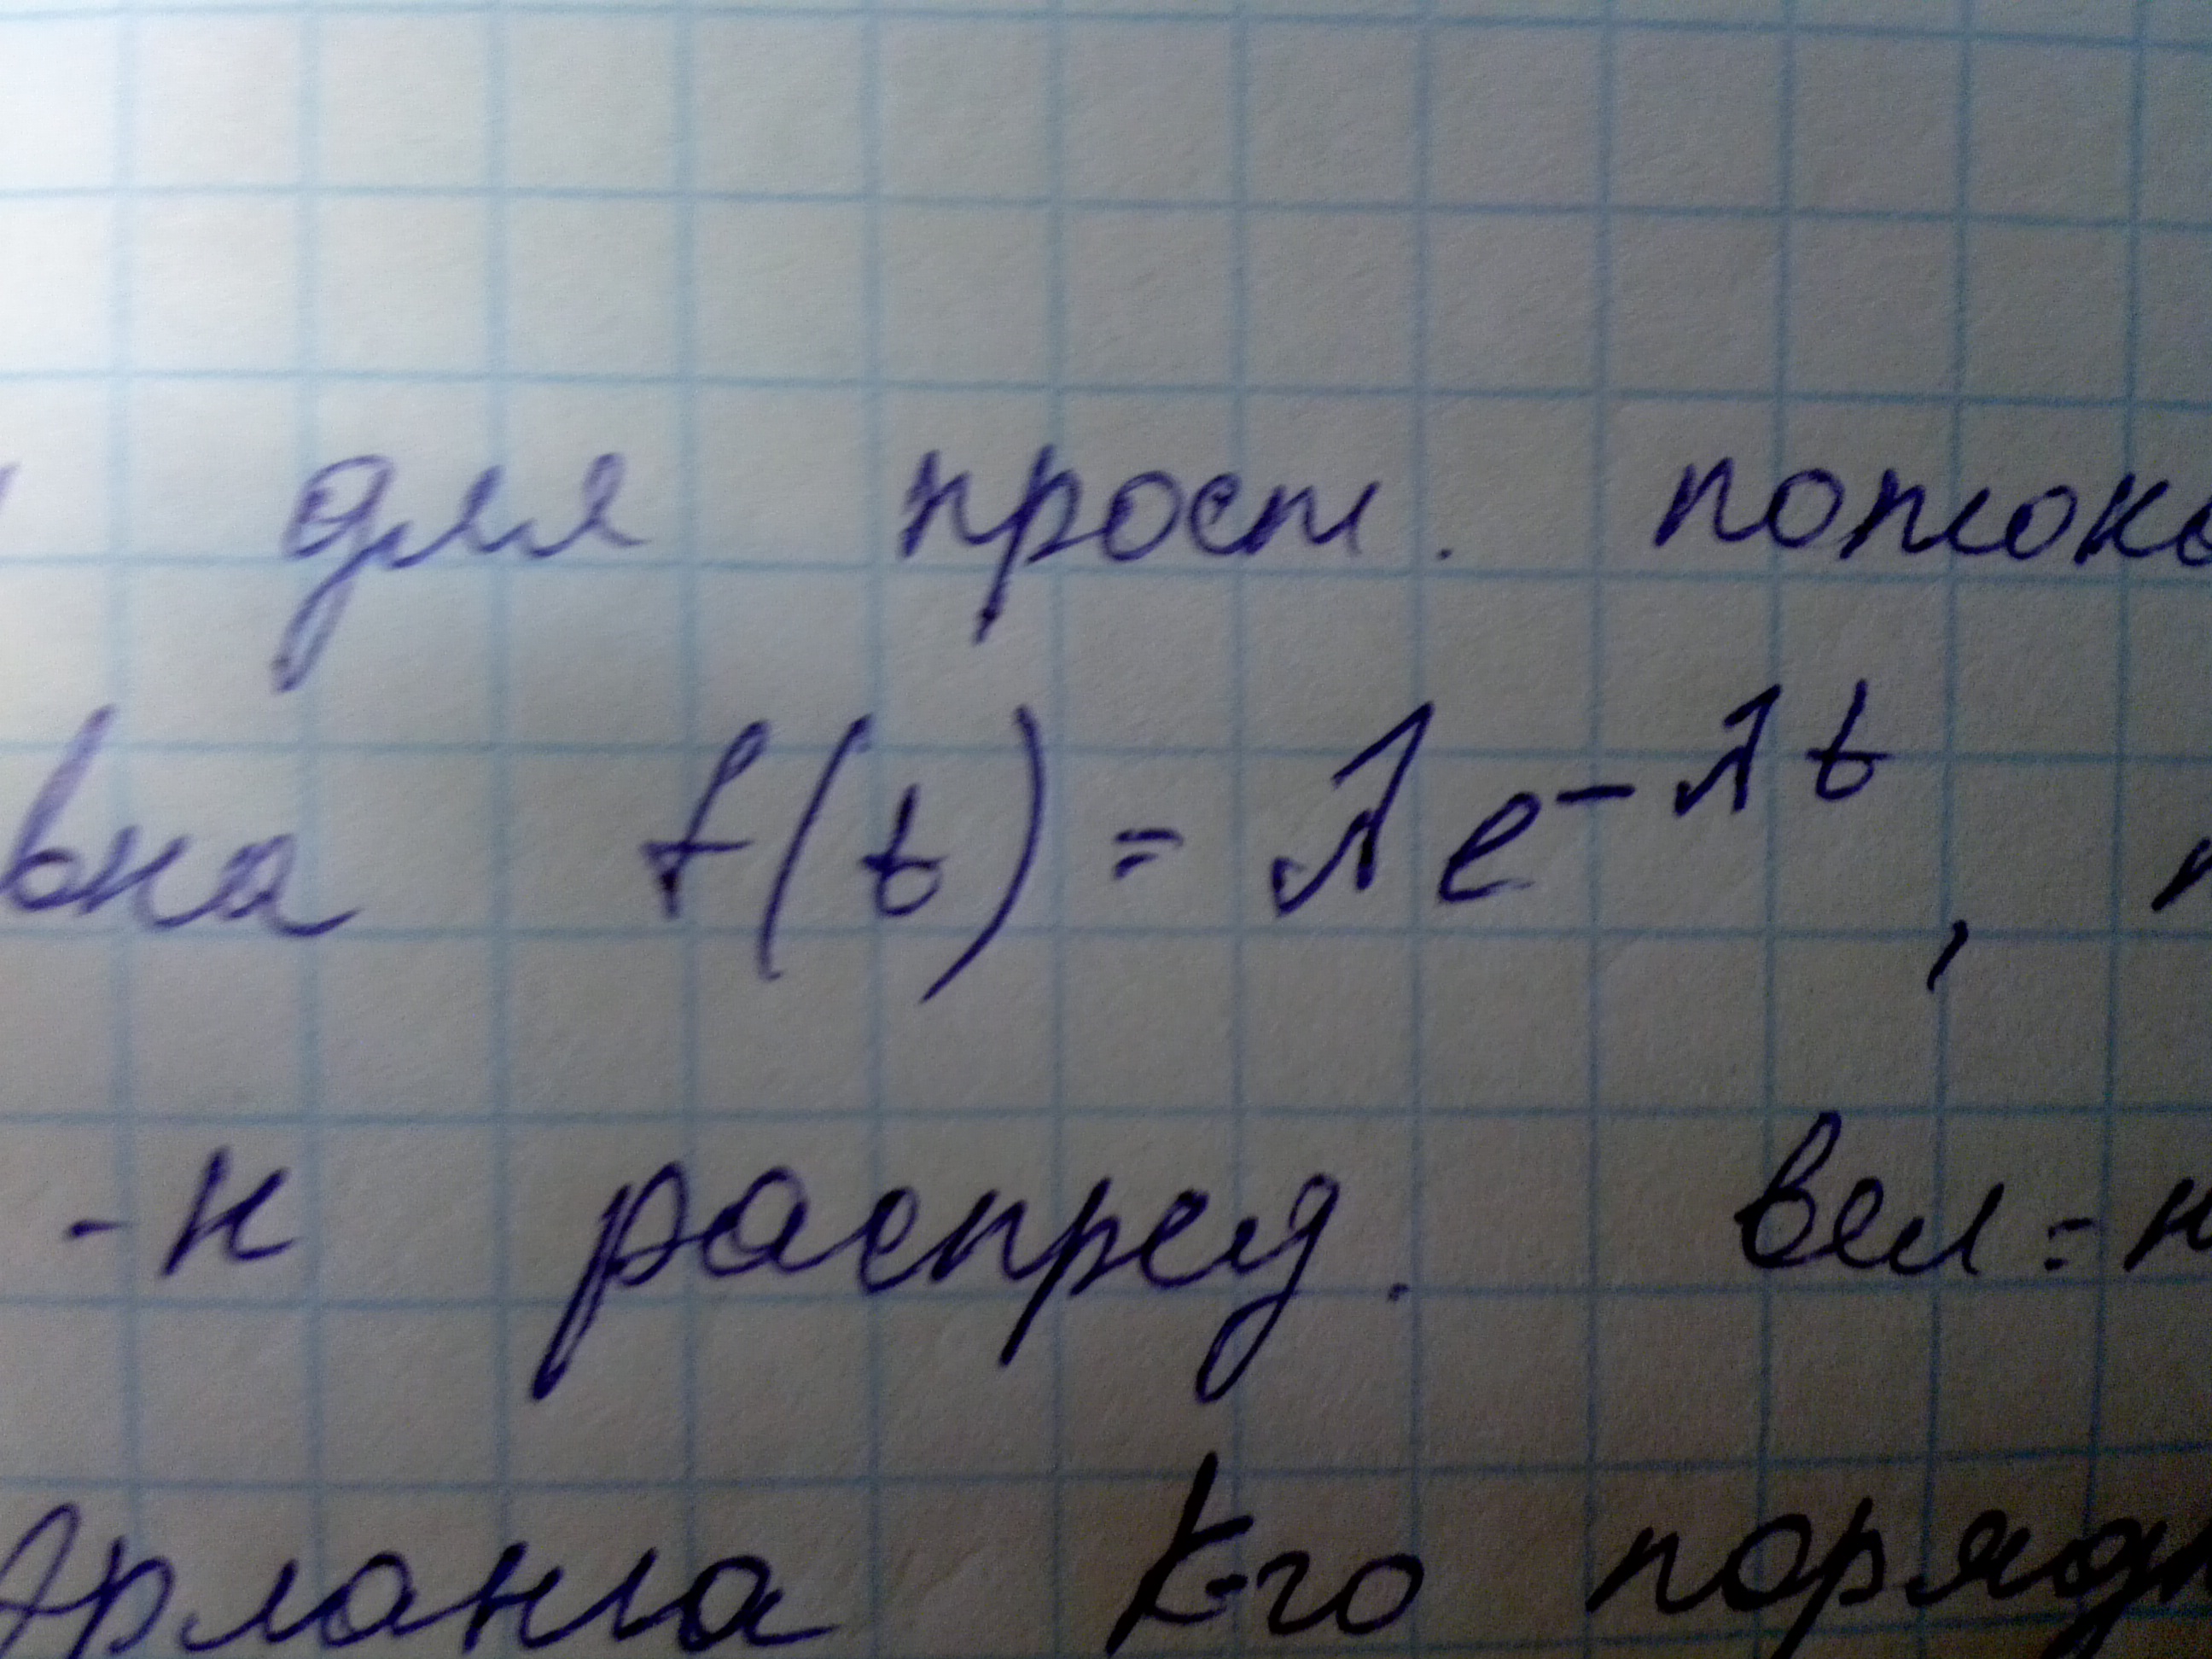 для прост. потока
вна f(t) = λe^{-λt},
-н распред. вел-н
Эрланга k-го порядк